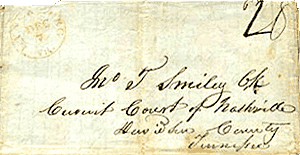 20
Jno T Smiley Clk
Circuit Court of Nashville
Davidson County
Tennessee